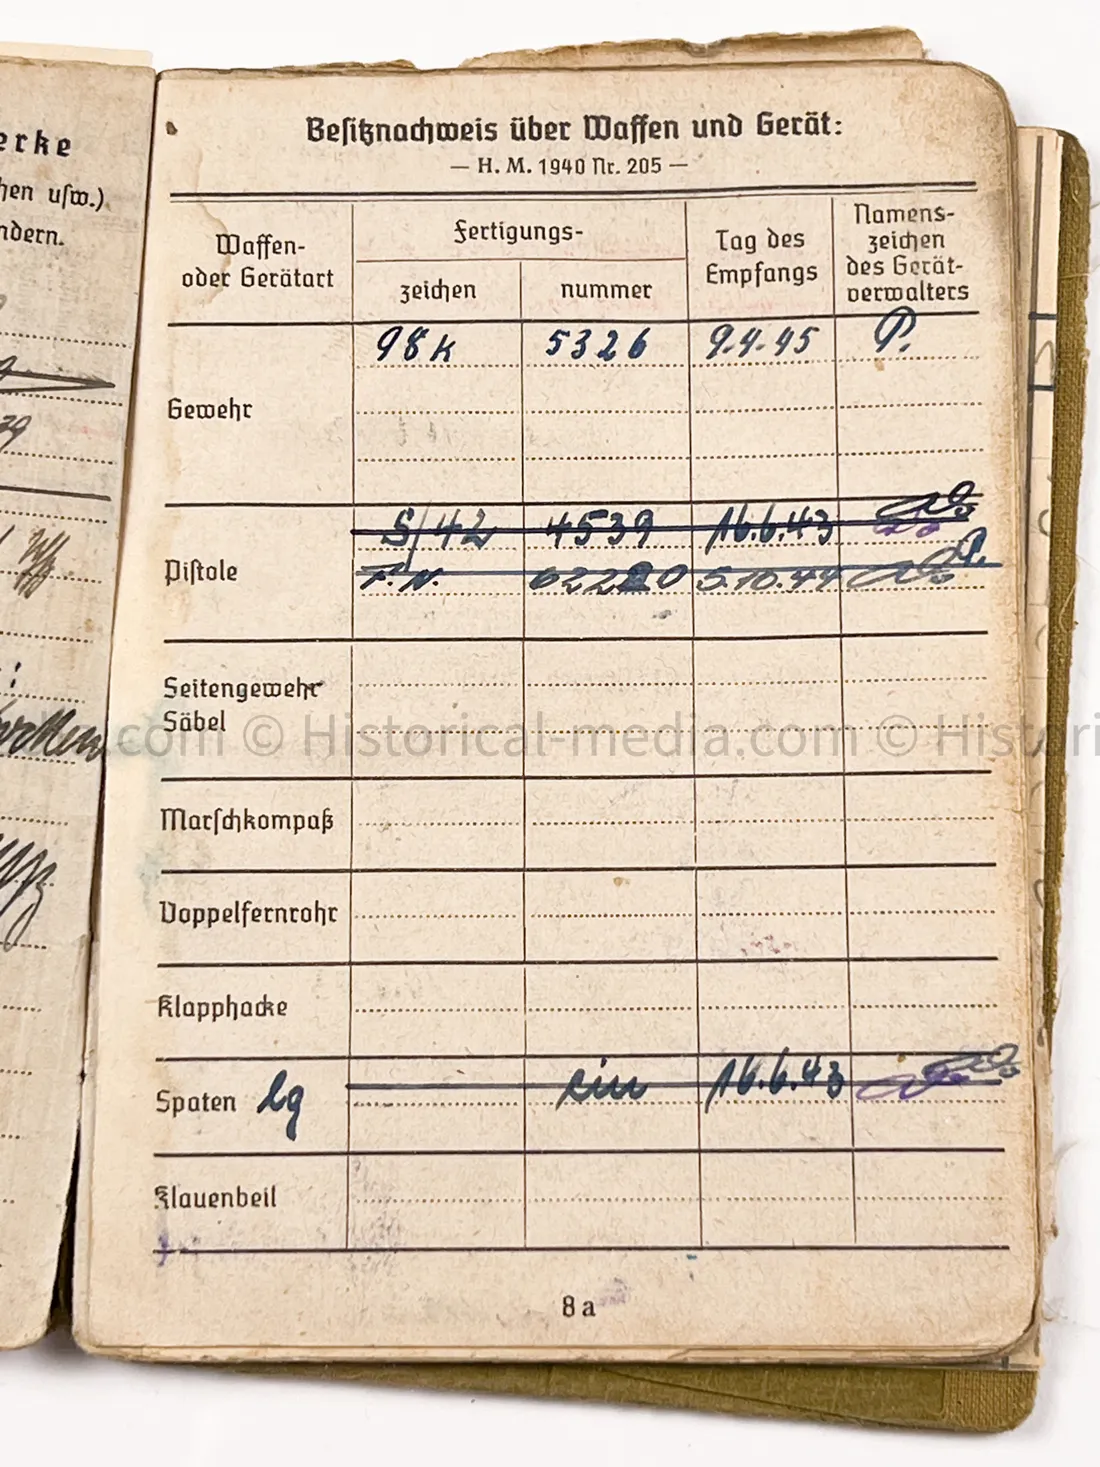 erke
hen usw.)
ndern.
Besitznachweis über Waffen und Gerät:
— H. M. 1940 Nr. 205 —
Waffen-
oder Gerätart
Fertigungs-
zeichen
nummer
Tag des
Empfangs
Namens-
zeichen
des Gerät-
verwalters
Gewehr
98k 5326 9.4.45 P.
Pistole
S/42 4539 16.6.43
F.N. 62220 5.10.44 P.
Seitengewehr
Säbel
Marschkompaß
Doppelfernrohr
Klapphacke
Spaten lg ein 16.6.43
Klauenbeil
8a
.com © Historical-media.com © Histori